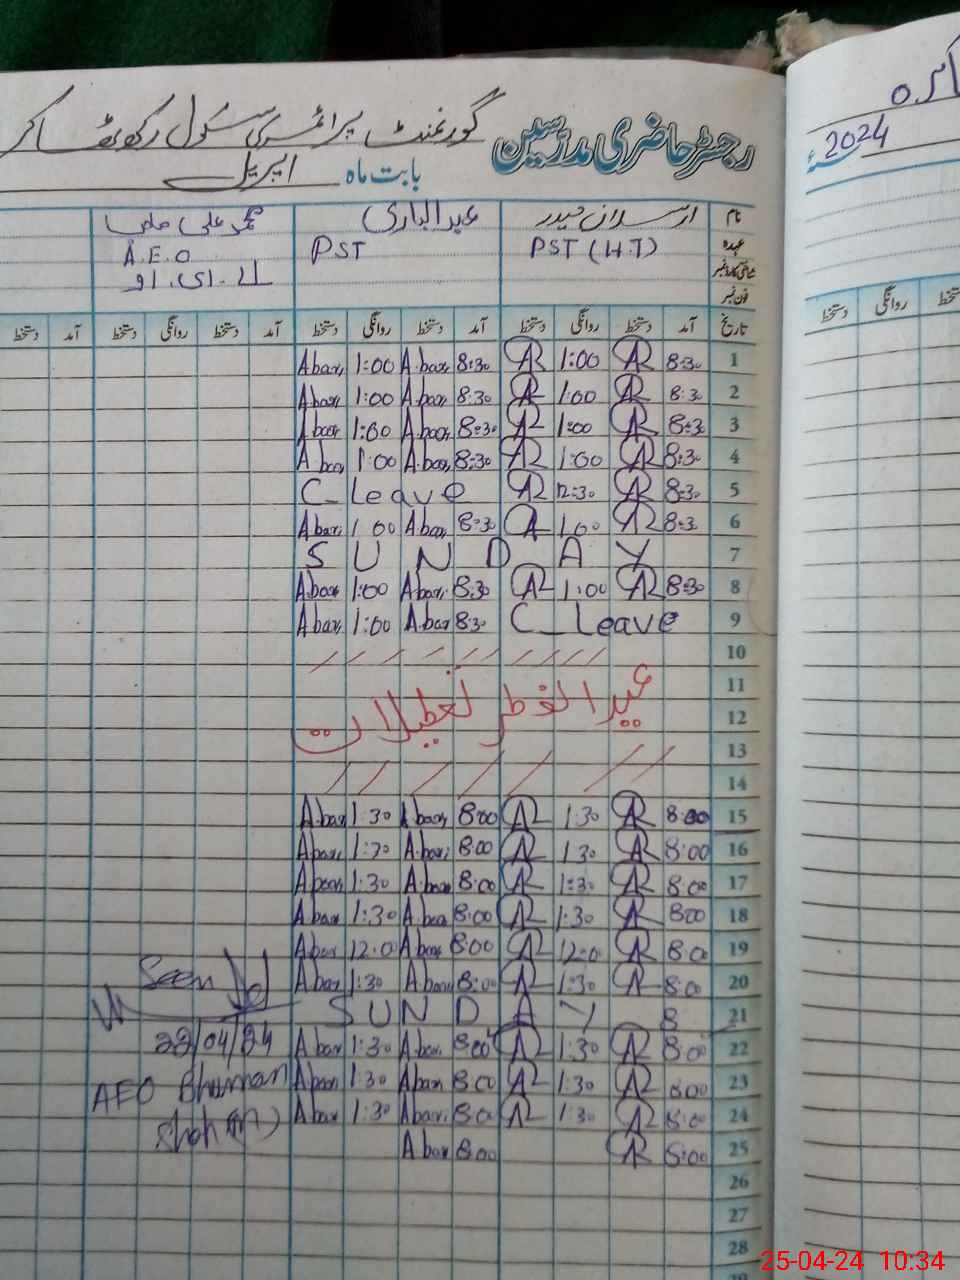 گورنمنٹ پرائمری سکول رکھ ٹھاکر
رجسٹر حاضری مدرسین
بابت ماہ اپریل
2024
نام ارسلان حیدر عبدالباری محمد علی
عہدہ PST (H.T) PST A.E.O
اے.ای.او
شناختی کارڈ نمبر
فون نمبر
تاریخ آمد دستخط روانگی دستخط آمد دستخط روانگی دستخط آمد دستخط روانگی دستخط آمد دستخط
روانگی دستخط
1 8:30 AR 1:00 AR 8:30 Abari 1:00 Abari
2 8:30 AR 1:00 AR 8:30 Abari 1:00 Abari
3 8:30 AR 1:00 AR 8:30 Abari 1:00 Abari
4 8:30 AR 1:00 AR 8:30 Abari 1:00 Abari
5 8:30 AR 12:30 AR C_Leave
6 8:30 AR 1:00 AR 8:30 Abari 1:00 Abari
7 SUNDAY
8 8:30 AR 1:00 AR 8:30 Abari 1:00 Abari
9 C_Leave 8:30 Abari 1:00 Abari
10
11
عید الفطر تعطیلات
12
13
14
15 8:00 AR 1:30 AR 8:00 Abari 1:30 Abari
16 8:00 AR 1:30 AR 8:00 Abari 1:30 Abari
17 8:00 AR 1:30 AR 8:00 Abari 1:30 Abari
18 8:00 AR 1:30 AR 8:00 Abari 1:30 Abari
19 8:00 AR 12:00 AR 8:00 Abari 12:00 Abari
20 8:00 AR 1:30 AR 8:00 Abari 1:30 Abari
Seen
21 SUNDAY 8
22 8:00 AR 1:30 AR 8:00 Abari 1:30 Abari
23/04/24
23 8:00 AR 1:30 AR 8:00 Abari 1:30 Abari
AEO Bhaman
24 8:00 AR 1:30 AR 8:00 Abari 1:30 Abari
Shah
25 8:00 AR 8:00 Abari
26
27
28
25-04-24 10:34